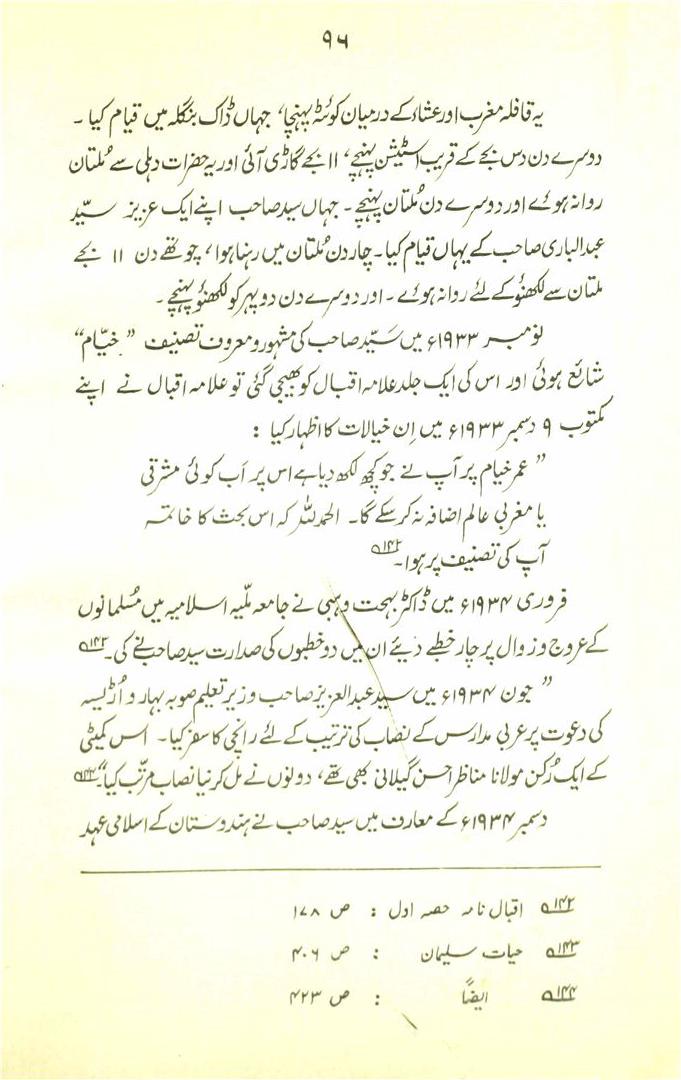 ۹۶
یہ قافلہ مغرب اور عشاء کے درمیان کوئٹہ پہنچا، جہاں ڈاک بنگلہ میں قیام کیا ۔
دوسرے دن دس بجے کے قریب اسٹیشن پہنچے، ۱۱ بجے گاڑی آئی اور یہ حضرات دہلی سے مُلتان
روانہ ہوئے اور دوسرے دن مُلتان پہنچے ۔ جہاں سید صاحب اپنے ایک عزیز سیّد
عبدالباری صاحب کے یہاں قیام کیا۔ چار دن مُلتان میں رہنا ہوا، چوتھے دن ۱۱ بجے
ملتان سے لکھنؤ کے لئے روانہ ہوئے ۔ اور دوسرے دن دوپہر کو لکھنؤ پہنچے ۔
نومبر ۱۹۳۳ء میں سَیّد صاحب کی مشہور و معروف تصنیف ”خیّام“
شائع ہوئی اور اس کی ایک جلد علامہ اقبال کو بھیجی گئی تو علامہ اقبال نے اپنے
مکتوب ۹ دسمبر ۱۹۳۳ء میں اِن خیالات کا اظہار کیا :
”عمر خیام پر آپ نے جو کچھ لکھ دیا ہے اس پر اَب کوئی مشرقی
یا مغربی عالم اضافہ نہ کر سکے گا۔ الحمدللہ کہ اس بحث کا خاتمہ
آپ کی تصنیف پر ہوا۔ ۱۴۲ھ
فروری ۱۹۳۴ء میں ڈاکٹر بہجت وہبی نے جامعہ ملّیہ اسلامیہ میں مُسلمانوں
کے عروج و زوال پر چار خطبے دیئے ان میں دو خطبوں کی صدارت سید صاحب نے کی۔ ۱۴۳ھ
”جون ۱۹۳۴ء میں سید عبدالعزیز صاحب وزیر تعلیم صوبہ بہار و اُڑیسہ
کی دعوت پر عربی مدارس کے نصاب کی ترتیب کے لئے رانچی کا سفر کیا۔ اس کمیٹی
کے ایک رُکن مولانا مناظر احسن گیلانی بھی تھے، دونوں نے مل کر نیا نصاب مرتّب کیا“۔ ۱۴۴ھ
دسمبر ۱۹۳۴ء کے معارف میں سید صاحب نے ہندوستان کے اسلامی عہد
۱۴۲ھ اقبال نامہ حصہ اول : ص ۱۷۸
۱۴۳ھ حیات سلیمان : ص ۴۰۶
۱۴۴ھ ایضاً : ص ۴۲۳